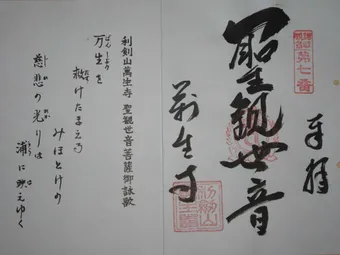 奉拝
第七番
聖観世音
萬生寺
利剣山
利剣山萬生寺 聖観世音菩薩御詠歌
万生を
ばんしょう
救けたまえる
みほとけの
慈悲の光りは
浦に映えゆく